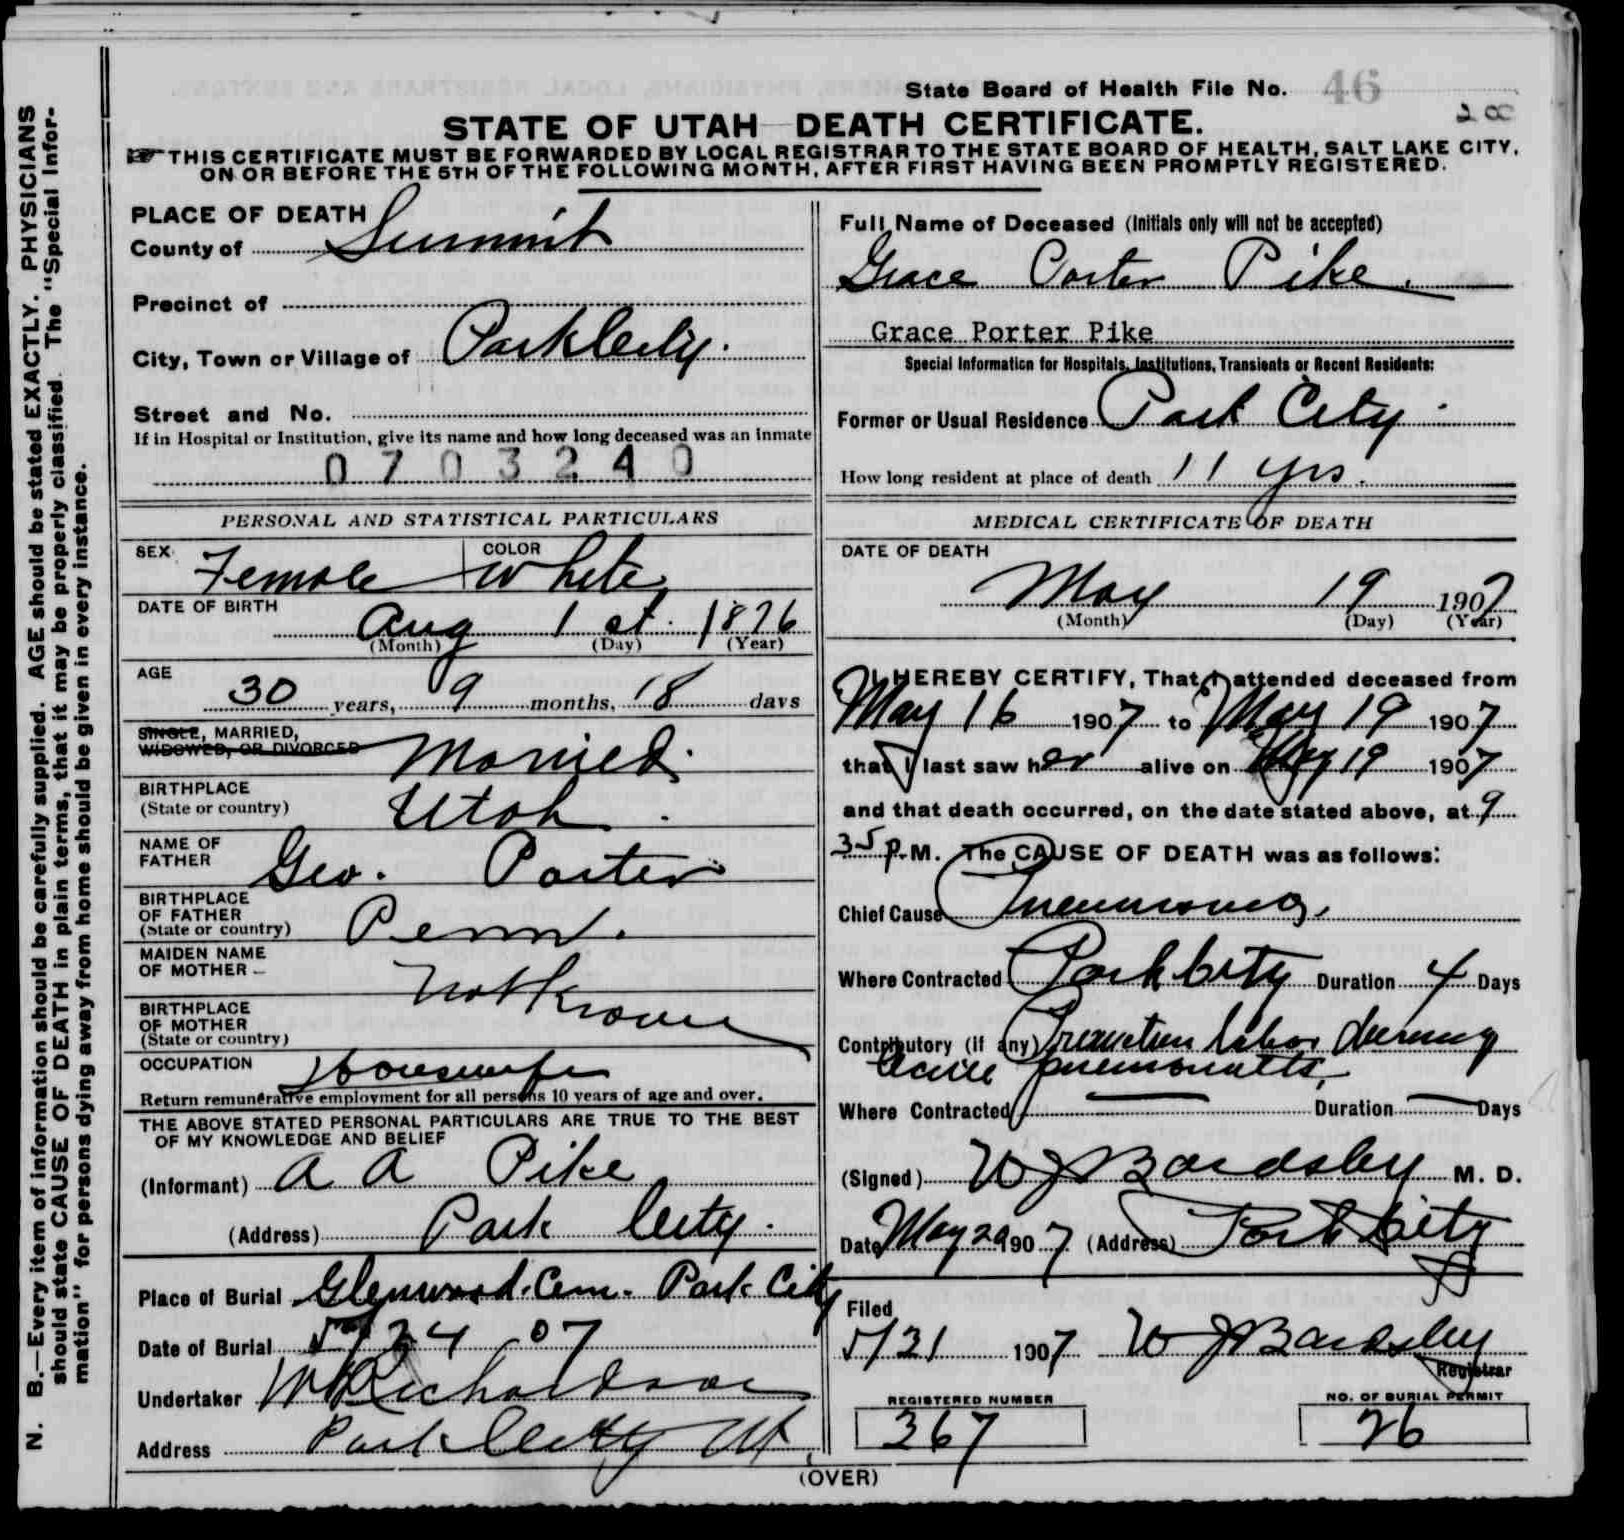 State Board of Health File No. 46
200
STATE OF UTAH—DEATH CERTIFICATE.
☞ THIS CERTIFICATE MUST BE FORWARDED BY LOCAL REGISTRAR TO THE STATE BOARD OF HEALTH, SALT LAKE CITY,
ON OR BEFORE THE 5TH OF THE FOLLOWING MONTH, AFTER FIRST HAVING BEEN PROMPTLY REGISTERED.
N. B.—Every item of information should be carefully supplied. AGE should be stated EXACTLY. PHYSICIANS
should state CAUSE OF DEATH in plain terms, that it may be properly classified. The "Special Infor-
mation" for persons dying away from home should be given in every instance.
PLACE OF DEATH
County of Summit
Precinct of
City, Town or Village of Park City.
Street and No.
If in Hospital or Institution, give its name and how long deceased was an inmate
0703240
Full Name of Deceased (Initials only will not be accepted)
Grace Porter Pike.
Grace Porter Pike
Special Information for Hospitals, Institutions, Transients or Recent Residents:
Former or Usual Residence Park City.
How long resident at place of death 11 yrs.
PERSONAL AND STATISTICAL PARTICULARS
SEX Female COLOR White
DATE OF BIRTH
Aug 1st. 1876
(Month) (Day) (Year)
AGE
30 years, 9 months, 18 days
SINGLE, MARRIED,
WIDOWED, OR DIVORCED Married.
BIRTHPLACE
(State or country) Utah.
NAME OF
FATHER Geo. Porter
BIRTHPLACE
OF FATHER
(State or country) Penn.
MAIDEN NAME
OF MOTHER
Not Known
BIRTHPLACE
OF MOTHER
(State or country)
OCCUPATION Housewife
Return remunerative employment for all persons 10 years of age and over.
THE ABOVE STATED PERSONAL PARTICULARS ARE TRUE TO THE BEST
OF MY KNOWLEDGE AND BELIEF
(Informant) A A Pike
(Address) Park City.
Place of Burial Glenwood. Cem. Park City
Date of Burial 5/24 07
Undertaker Richardson
Address Park City Ut.
MEDICAL CERTIFICATE OF DEATH
DATE OF DEATH
May 19 1907
(Month) (Day) (Year)
I HEREBY CERTIFY, That I attended deceased from
May 16 1907 to May 19 1907
that I last saw her alive on May 19 1907
and that death occurred, on the date stated above, at 9
35 p.M. The CAUSE OF DEATH was as follows:
Chief Cause Pneumonia.
Where Contracted Park City Duration 4 Days
Contributory (If any) Premature labor during
Acute pneumonitis.
Where Contracted — Duration — Days
(Signed) W J Bardsley M. D.
Date May 20 1907 (Address) Park City
Filed
5/21 1907 W J Bardsley
Registrar
REGISTERED NUMBER
367
NO. OF BURIAL PERMIT
26
(OVER)